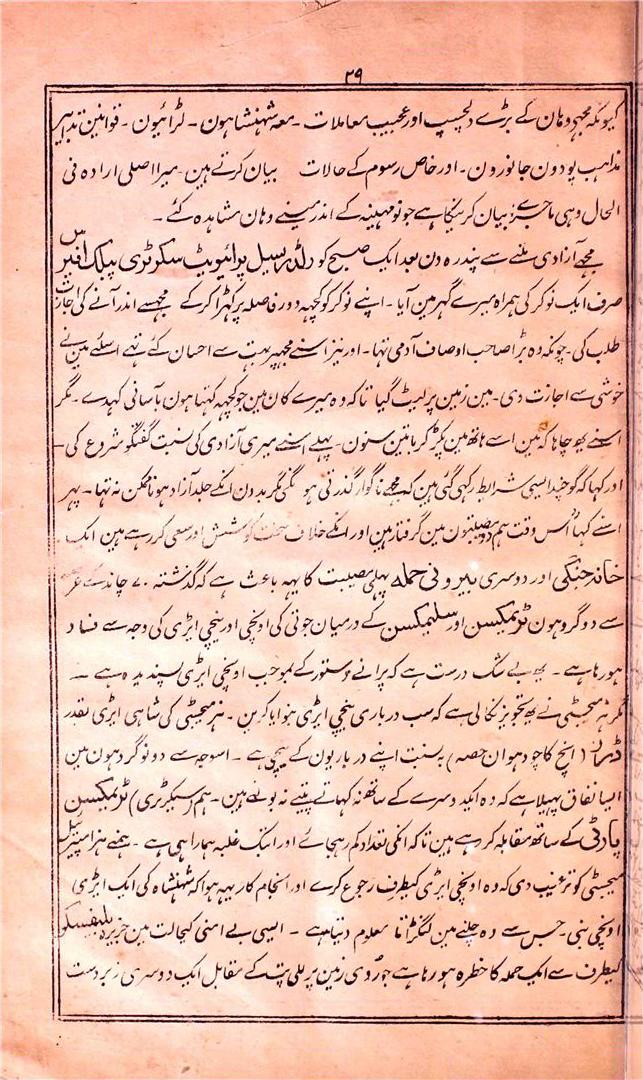 ۲۹
کیونکہ مجہو وہان کے بڑے دلچسپ اور عجیب معاملات ۔ معہ شہنشاہون ۔ لڑائیون ۔ قوانین تدابیر
مذاہب پودون جانورون ۔ اور خاص رسوم کے حالات بیان کرنے ہین ۔ میرا اصلی ارادہ فی
الحال وہی ماجرے بیان کرنیکا ہے جو نو مہینہ کے اندر مینے وہان مشاہدہ کئے ۔
مجہے آزادی ملنے سے پندرہ دن بعد ایک صبح کو دلڈریسیل پرائیویٹ سکوٹری پبلک افیرس
صرف ایک نوکر کی ہمراہ میرے گہر مین آیا ۔ اپنے نوکر کو کچہہ دور فاصلہ پر کہڑا کر کے مجہسے اندر آنے کی اجازت
طلب کی ۔ چونکہ وہ بڑا صاحب اوصاف آدمی تہا ۔ اور نیز اسنے مجہپر بہت سے احسان کئے تہے اسلئے مین نے
خوشی سے اجازت دی ۔ مین زمین پر لیٹ گیا تاکہ وہ میرے کان مین جو کچہہ کہتا ہون بآسانی کہدے ۔ مگر
اسنے یہ چاہا کہ مین اسے ہاتھ مین پکڑ کر باتین سنون ۔ پہلے اسنے میری آزادی کی نسبت گفتگو شروع کی ۔
اور کہا کہ گو چند ایسی شرایط رکہی گئی ہین کہ مجہے ناگوار گذرتی ہونگی مگر بدون انکے جلد آزاد ہونا ممکن نہ تہا ۔ پہر
اسنے کہا اس وقت ہم دو مصیبتون مین گرفتار ہین اور انکے خلاف سخت کوشش اور سعی کر رہے ہین ایک
خانہ جنگی اور دوسری بیرونی حملہ پہلی مصیبت کا یہہ باعث ہے کہ گذشتہ ۷۰ چاند کے عرصہ
سے دو گروہون ٹریمکسن اور سلیمکسن کے درمیان جوتی کی اونچی اور نیچی ایڑی کی وجہ سے فساد
ہو رہا ہے ۔ یہ بے شک درست ہے کہ پرانے دستور کے بموجب اونچی ایڑی پسندیدہ ہے ۔
مگر ہز میجسٹی نے یہ تجویز نکالی ہے کہ سب درباری نیچی ایڑی بنوایا کرین ۔ ہز میجسٹی کی شاہی ایڑی بقدر
ڈرر ( انچ کا چودہوان حصہ ) بہ نسبت اپنے درباریون کے نیچی ہے ۔ اسوجہ سے دونو گروہون مین
ایسا نفاق پہیلا ہے کہ وہ ایک دوسرے کے ساتھ نہ کہاتے پیتے نہ بولتے ہین ۔ ہم (سیکرٹری) ٹریمکسن
پارٹی کے ساتھ مقابلہ کر رہے ہین تاکہ انکی تعداد کم رہجائے اور ابتک غلبہ ہمارا ہی ہے ۔ ہمنے ہز امپیریل
میجسٹی کو ترغیب دی کہ وہ اونچی ایڑی کیطرف رجوع کرے اور انجام کار یہہ ہوا کہ شہنشاہ کی ایک ایڑی
اونچی بنی ۔ جس سے وہ چلنے مین لنگڑاتا معلوم دیتا ہے ۔ ایسی بے امنی کیحالت مین جزیرہ بلیفسکو
کیطرف سے ایک حملہ کا خطرہ ہو رہا ہے جو روی زمین پر للی پٹ کے مقابل ایک دوسری زبردست